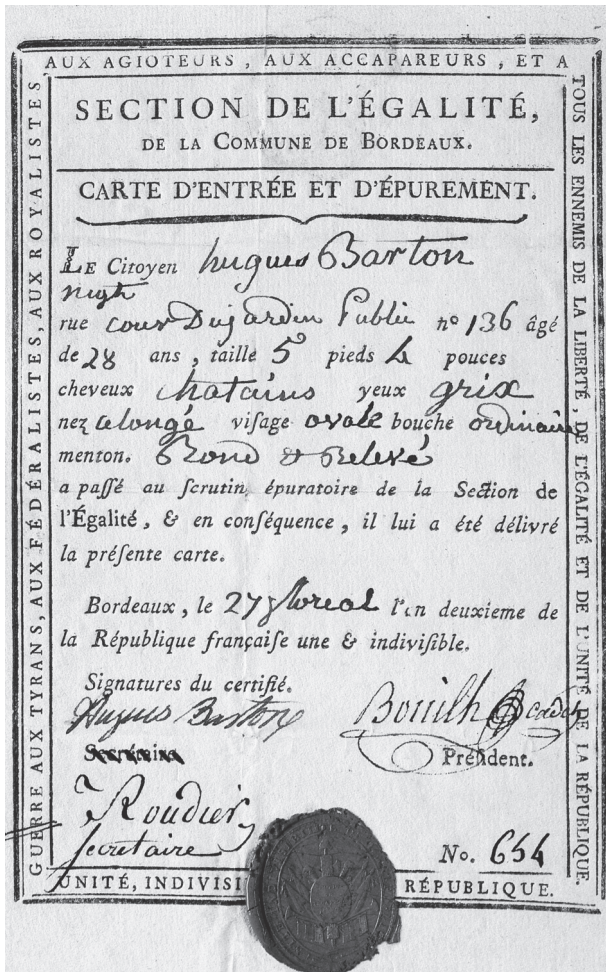 AUX AGIOTEURS, AUX ACCAPAREURS, ET A
TOUS LES ENNEMIS DE LA LIBERTÉ, DE L'ÉGALITÉ ET DE L'UNITÉ DE LA RÉPUBLIQUE.
GUERRE AUX TYRANS, AUX FÉDÉRALISTES, AUX ROYALISTES
SECTION DE L'ÉGALITÉ,
DE LA COMMUNE DE BORDEAUX.
CARTE D'ENTRÉE ET D'ÉPUREMENT.
LE Citoyen hugues Barton
rue cour Dujardin Public n° 136 âgé
de 28 ans, taille 5 pieds 4 pouces
cheveux chatains yeux grix
nez alongé viſage ovale bouche ordinaire
menton. Rond & Relevé
a paſſé au ſcrutin épuratoire de la Section de
l'Égalité, & en conſéquence, il lui a été délivré
la préſente carte.
Bordeaux, le 27 floreal l'an deuxieme de
la République françaiſe une & indiviſible.
Signatures du certifié.
Hugues Barton
Bouilh
Préſident.
Roudier
ſecretaire
No. 654
UNITÉ, INDIVISI RÉPUBLIQUE.